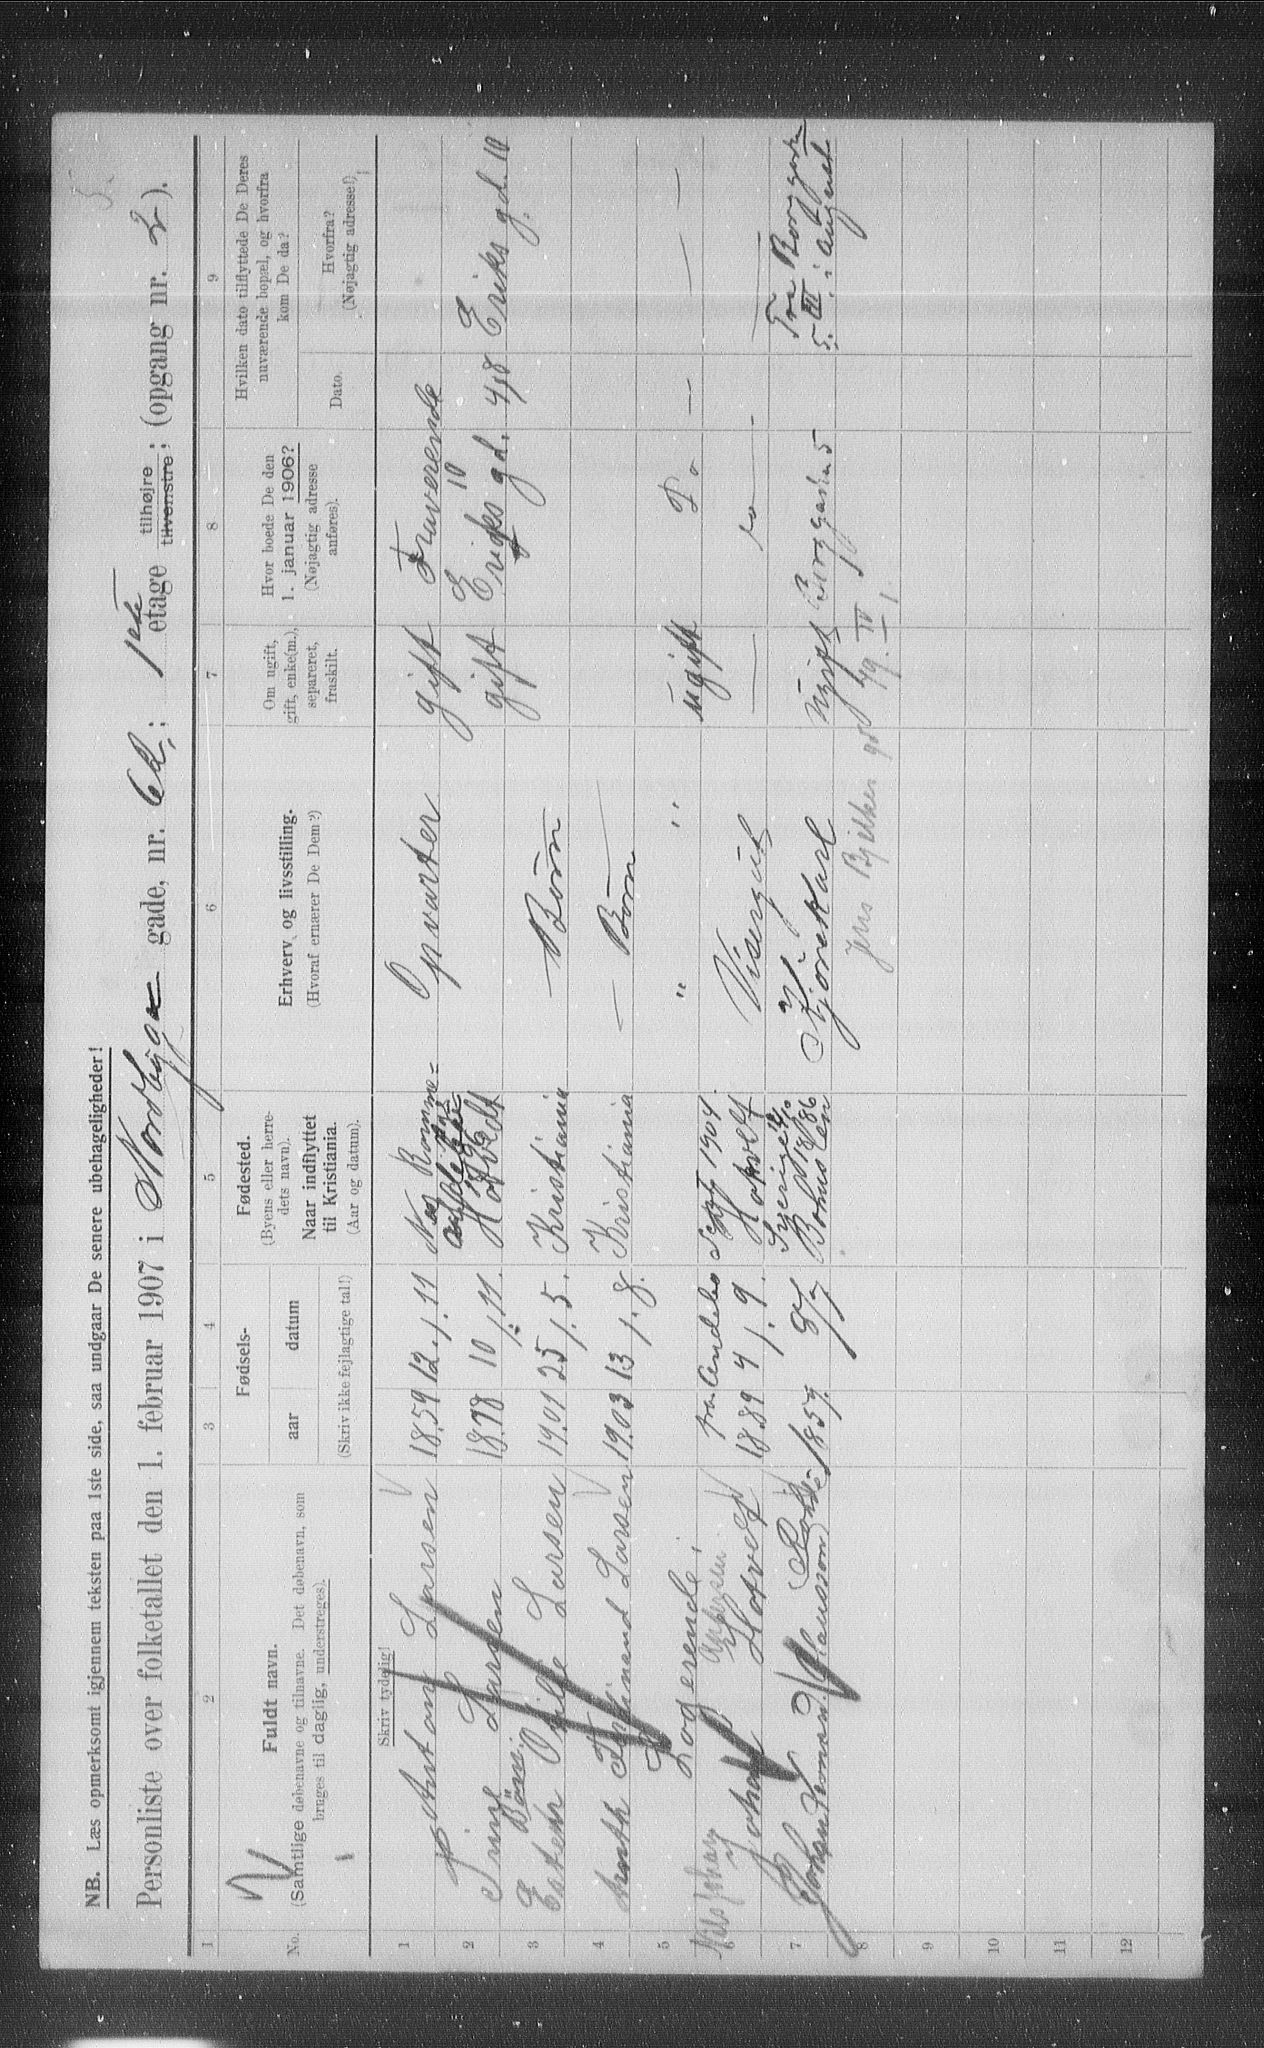 NB. Læs opmerksomt igjennem teksten paa 1ste side, saa undgaar De senere ubehageligheder!
Personliste over folketallet den 1. februar 1907 i Nordbyge gade, nr. 6b; 1ste etage tilhøjre tilvenstre; (opgang nr. 2).
1 2 3 4 5 6 7 8 9
No.
Fuldt navn.
(Samtlige døbenavne og tilnavne. Det døbenavn, som
bruges til daglig, understreges).
Fødsels-
aar datum
(Skriv ikke fejlagtige tal!)
Fødested.
(Byens eller herre-
dets navn).
Naar indflyttet
til Kristiania.
(Aar og datum).
Erhverv og livsstilling.
(Hvoraf ernærer De Dem?)
Om ugift,
gift, enke(m.),
separeret,
fraskilt.
Hvor boede De den
1. januar 1906?
(Nøjagtig adresse
anføres).
Hvilken dato tilflyttede De Deres
nuværende bopæl, og hvorfra
kom De da?
Dato.
Hvorfra?
(Nøjagtig adresse!)
Skriv tydelig!
1 Anton Larsen 1859 12/11 Opvarter gift Fraværende
2 Larsen 1878 10/11. Hotvedt gift Eriks gd. 10 4/8 Eriks gd. 10
Børn:
3 Larsen 1901 25/5. Kristiania Børn
4 Ferdinand Larsen 1903 13/8. Kristiania Børn
5 Logerende: " " ugift Do — — —
fra Sept 1904.
6 Johan Hotvedt 1889 4/9. Hotvedt Visergut — do —
7 Johan Klausson 1857. 8/7 Bohuslen Kjørekarl Ugift Borggaden 5 Fra Borggaden
5. III. i August
Jens Bjelkes gd 79. IV
8
9
10
11
12